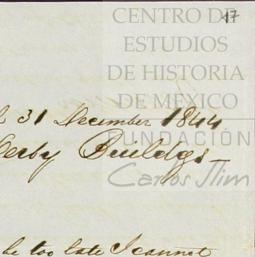 CENTRO DE
ESTUDIOS
DE HISTORIA
DE MÉXICO
FUNDACIÓN
Carlos Slim
47
31 December 1844
Derby Buildgs
be too late I cannot